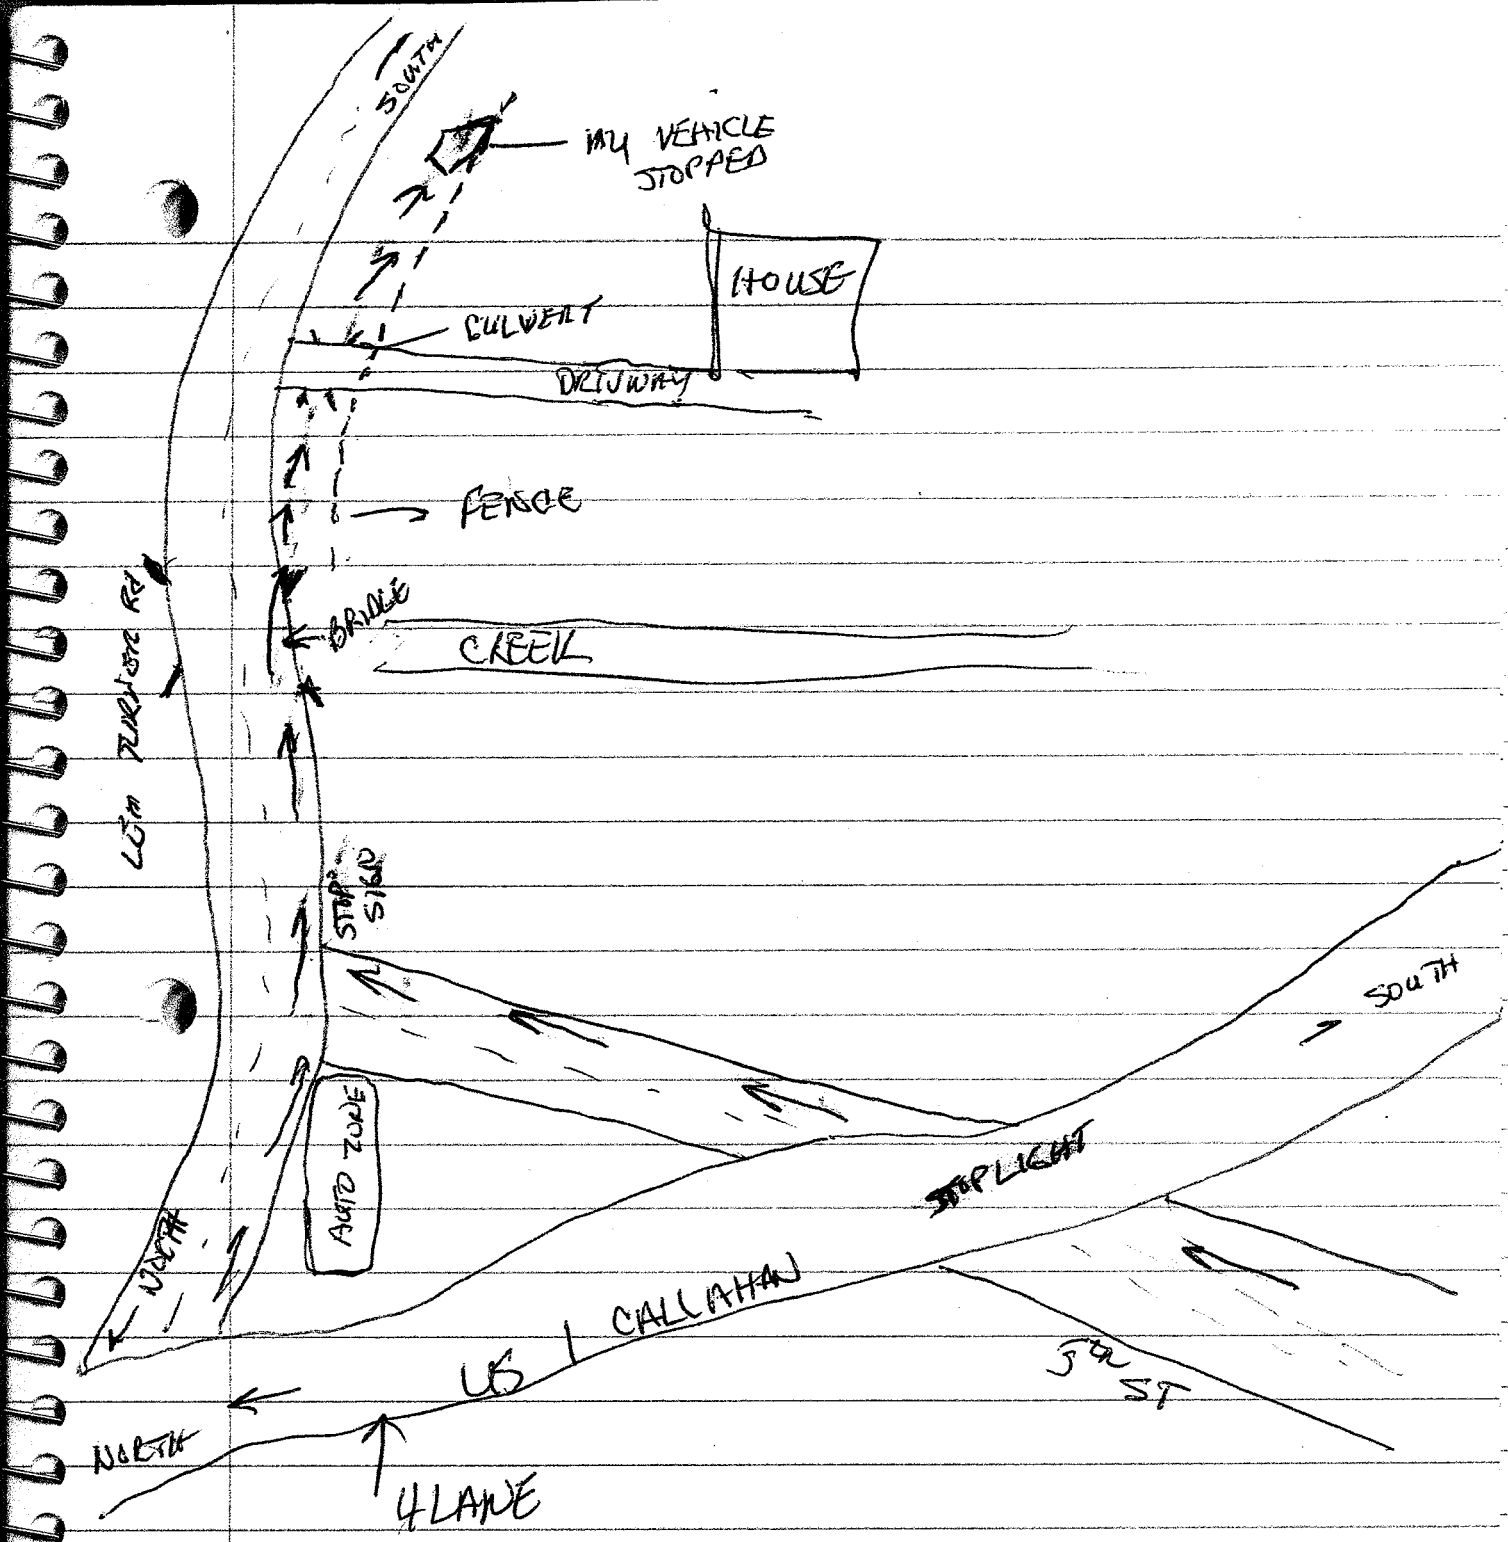 SOUTH
MY VEHICLE
STOPPED
HOUSE
CULVERT
DRIVWAY
FENCE
BRIDGE
CREEK
Rd
STOP
SIGN
SOUTH
AUTO ZONE
STOPLIGHT
NORTH
CALLAHAN
US 1
5th
ST
NORTH
4 LANE